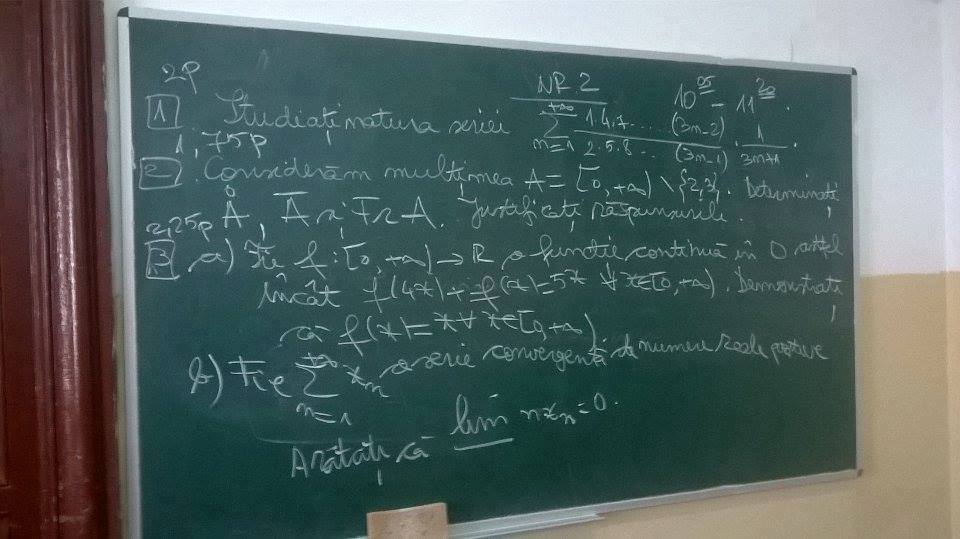 NR 2 10⁰⁵ - 11²⁰.
2p
1 Studiați natura seriei +∞ Σ n=1 1.4.7.... (3n-2) / 2.5.8... (3n-1) · 1 / 3n+1.
1,75p
2. Considerăm mulțimea A = [0,+∞) \ {2,3}. Determinați
Å, Ā și Fr A. Justificați răspunsurile.
2,25p
3 a) Fie f: [0,+∞) → R o funcție continuă în 0 astfel
încât f(4x) + f(x) = 5x ∀ x∈[0,+∞). Demonstrați
că f(x) = x ∀ x∈[0,+∞)
b) Fie +∞ Σ n=1 xₙ o serie convergentă de numere reale pozitive
Arătați că lim nxₙ = 0.